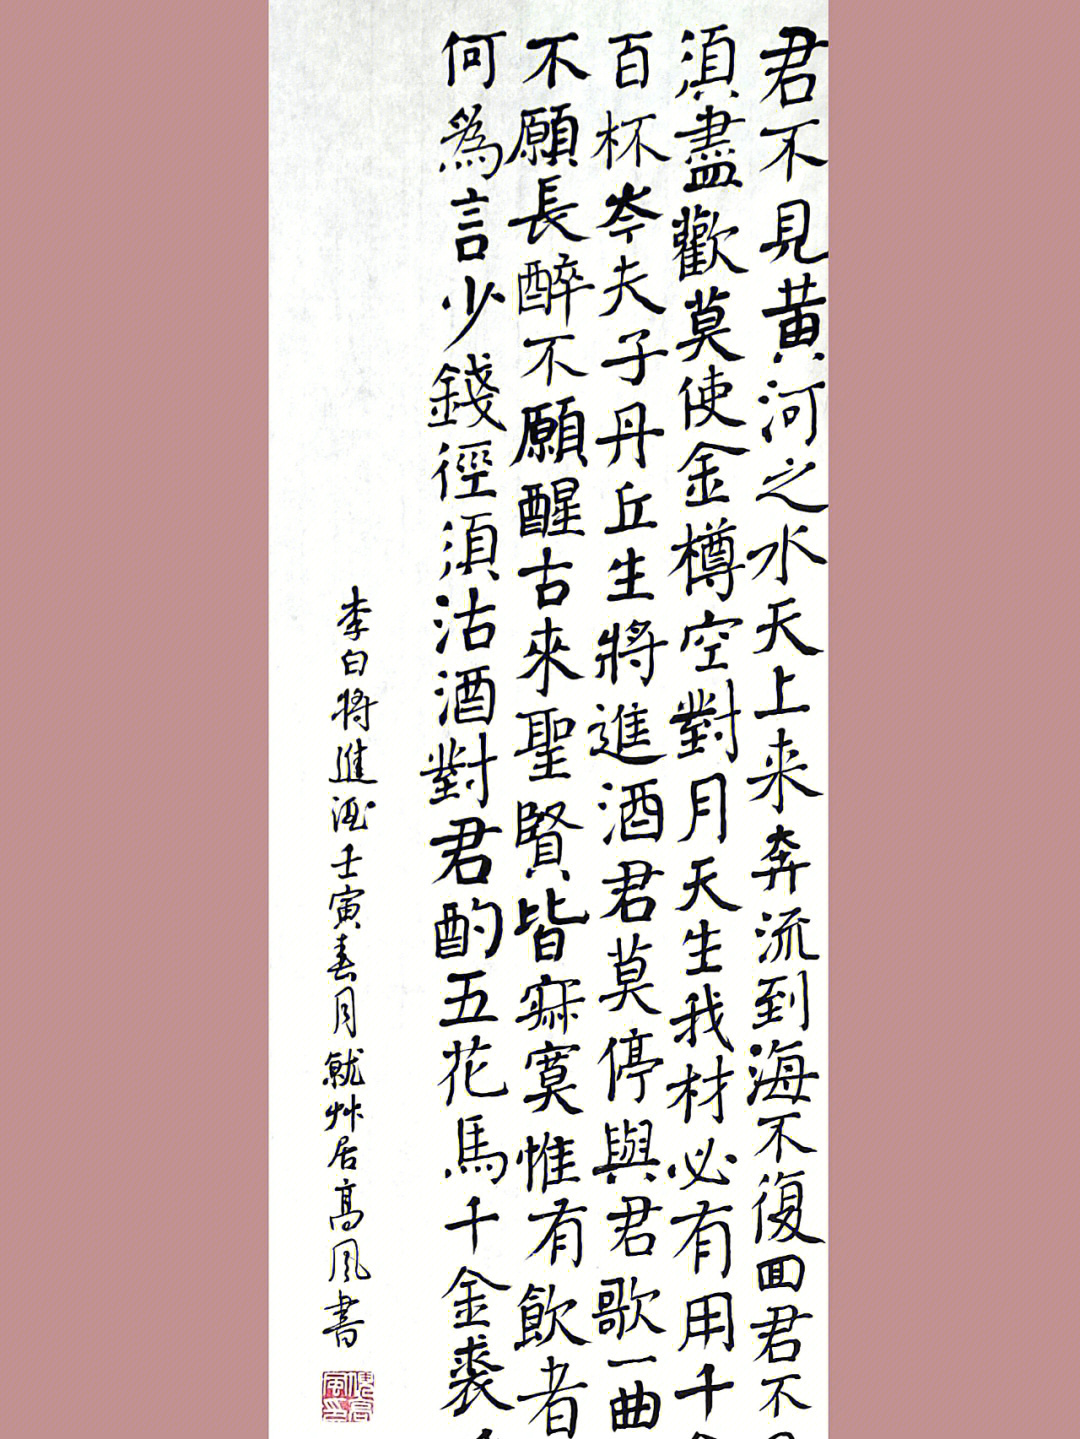 君不見黃河之水天上来奔流到海不復回君不
須盡歡莫使金樽空對月天生我材必有用千
百杯岑夫子丹丘生將進酒君莫停與君歌一曲
不願長醉不願醒古來聖賢皆寂寞惟有飲者
何為言少錢徑須沽酒對君酌五花馬千金裘
李白將進酒壬寅春月就艸居高風書